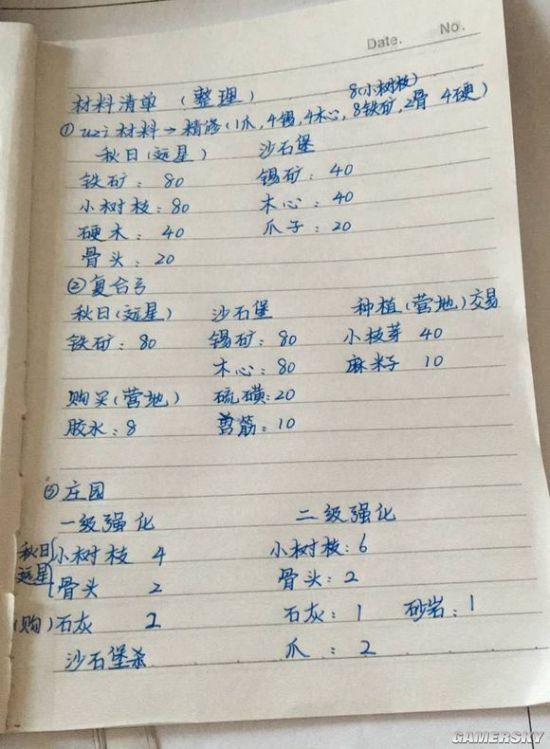 Date. No.
材料清单（整理） 8(小树枝)
① uzi材料→精修(1爪,4锡,4木心,8铁矿,2骨 4硬)
秋日(远星) 沙石堡
铁矿：80 锡矿：40
小树枝：80 木心：40
硬木：40 爪子：20
骨头：20
②复合弓
秋日(远星) 沙石堡 种植(营地)交易
铁矿：80 锡矿：80 小枝芽 40
木心：80 麻籽子 10
购买(营地) 硫磺：20
胶水：8 兽筋：10
③庄园
一级强化 二级强化
秋日远星{小树枝 4 小树枝：6
骨头 2 骨头：2
(购)石灰 2 石灰：1 砂岩：1
沙石堡杀 爪：2
GAMERSKY